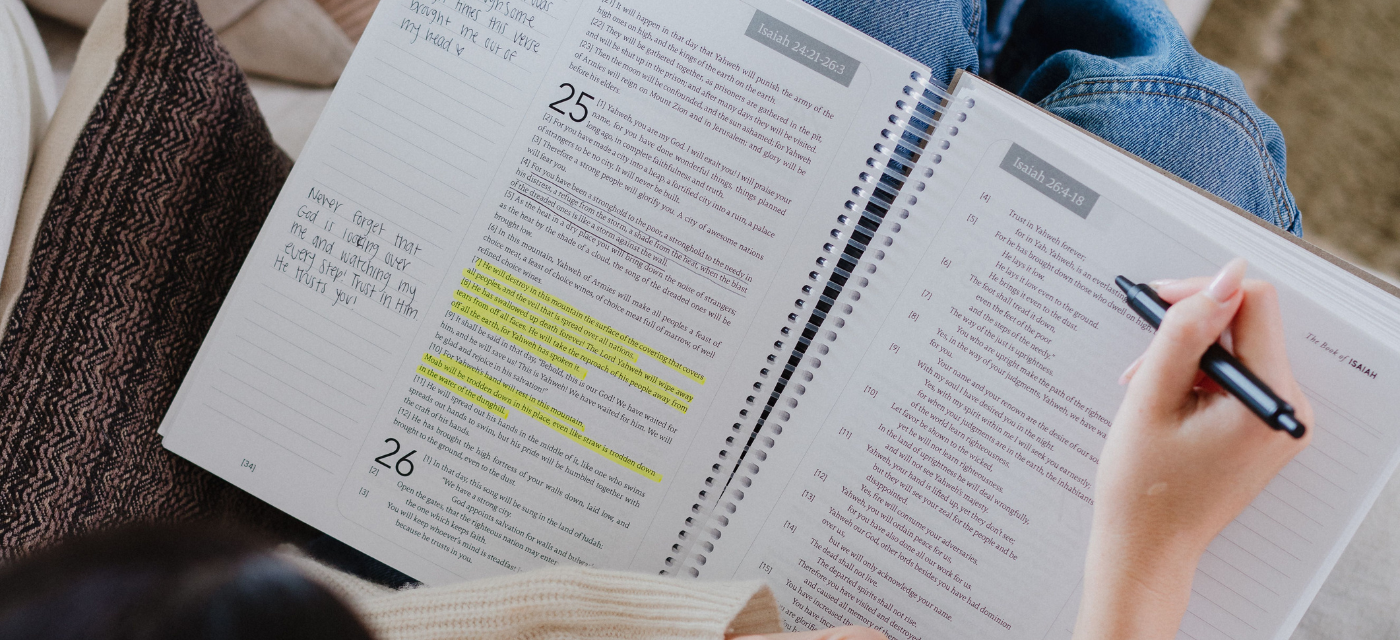 times this verse
brought me out of
my head
Never forget that
God is looking over
me and watching my
every step! Trust in Him
He trusts you!
[34]
Isaiah 24:21-26:3
[21] It will happen in that day that Yahweh will punish the army of the
high ones on high, and the kings of the earth on the earth.
[22] They will be gathered together, as prisoners are gathered in the pit,
and will be shut up in the prison; and after many days they will be visited.
[23] Then the moon will be confounded, and the sun ashamed; for Yahweh
of Armies will reign on Mount Zion and in Jerusalem; and glory will be
before his elders.
25
[1] Yahweh, you are my God. I will exalt you! I will praise your
name, for you have done wonderful things, things planned
long ago, in complete faithfulness and truth.
[2] For you have made a city into a heap, a fortified city into a ruin, a palace
of strangers to be no city. It will never be built.
[3] Therefore a strong people will glorify you. A city of awesome nations
will fear you.
[4] For you have been a stronghold to the poor, a stronghold to the needy in
his distress, a refuge from the storm, a shade from the heat, when the blast
of the dreaded ones is like a storm against the wall.
[5] As the heat in a dry place you will bring down the noise of strangers;
as the heat by the shade of a cloud, the song of the dreaded ones will be
brought low.
[6] In this mountain, Yahweh of Armies will make all peoples a feast of
choice meat, a feast of choice wines, of choice meat full of marrow, of well
refined choice wines.
[7] He will destroy in this mountain the surface of the covering that covers
all peoples, and the veil that is spread over all nations.
[8] He has swallowed up death forever! The Lord Yahweh will wipe away
tears from off all faces. He will take the reproach of his people away from
off all the earth, for Yahweh has spoken it.
[9] It shall be said in that day, "Behold, this is our God! We have waited for
him, and he will save us! This is Yahweh! We have waited for him. We will
be glad and rejoice in his salvation!"
[10] For Yahweh's hand will rest in this mountain.
Moab will be trodden down in his place, even like straw is trodden down
in the water of the dunghill.
[11] He will spread out his hands in the middle of it, like one who swims
spreads out hands to swim, but his pride will be humbled together with
the craft of his hands.
[12] He has brought the high fortress of your walls down, laid low, and
brought to the ground, even to the dust.
26
[1] In that day, this song will be sung in the land of Judah:
"We have a strong city.
God appoints salvation for walls and
[2] Open the gates, that the righteous nation may enter:
the one which keeps faith.
[3] You will keep whoever's mind is steadfast
because he trusts in you.
Isaiah 26:4-18
The Book of ISAIAH
[4] Trust in Yahweh forever;
for in Yah, Yahweh, is an everlasting
[5] For he has brought down those who dwell on high
He lays it low.
He lays it low even to the ground.
He brings it even to the dust.
[6] The foot shall tread it down,
even the feet of the poor
and the steps of the needy."
[7] The way of the just is uprightness.
You who are upright make the path of the righteous
[8] Yes, in the way of your judgments, Yahweh, we have wa
for you.
Your name and your renown are the desire of our
[9] With my soul I have desired you in the night.
Yes, with my spirit within me I will seek you earnestly;
for when your judgments are in the earth, the inhabitants
of the world learn righteousness.
[10] Let favor be shown to the wicked,
yet he will not learn righteousness.
In the land of uprightness he will deal wrongfully,
and will not see Yahweh's majesty.
[11] Yahweh, your hand is lifted up, yet they don't see;
but they will see your zeal for the people and be
disappointed.
Yes, fire will consume your adversaries.
[12] Yahweh, you will ordain peace for us,
for you have also done all our work for us.
[13] Yahweh our God, other lords besides you have had dominion
over us,
but we will only acknowledge your name.
[14] The dead shall not live.
The departed spirits shall not rise.
Therefore you have visited and destroyed
and caused all memory of
[15] You have increased the
You have increased
are glorif
You have